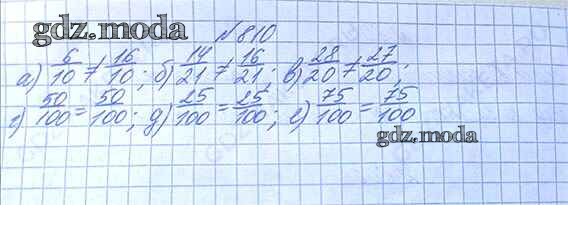 gdz.moda
№810
а) 6/10 ≠ 16/10; б) 14/21 ≠ 16/21; в) 28/20 ≠ 27/20;
г) 50/100 = 50/100; д) 25/100 = 25/100; е) 75/100 = 75/100
gdz.moda